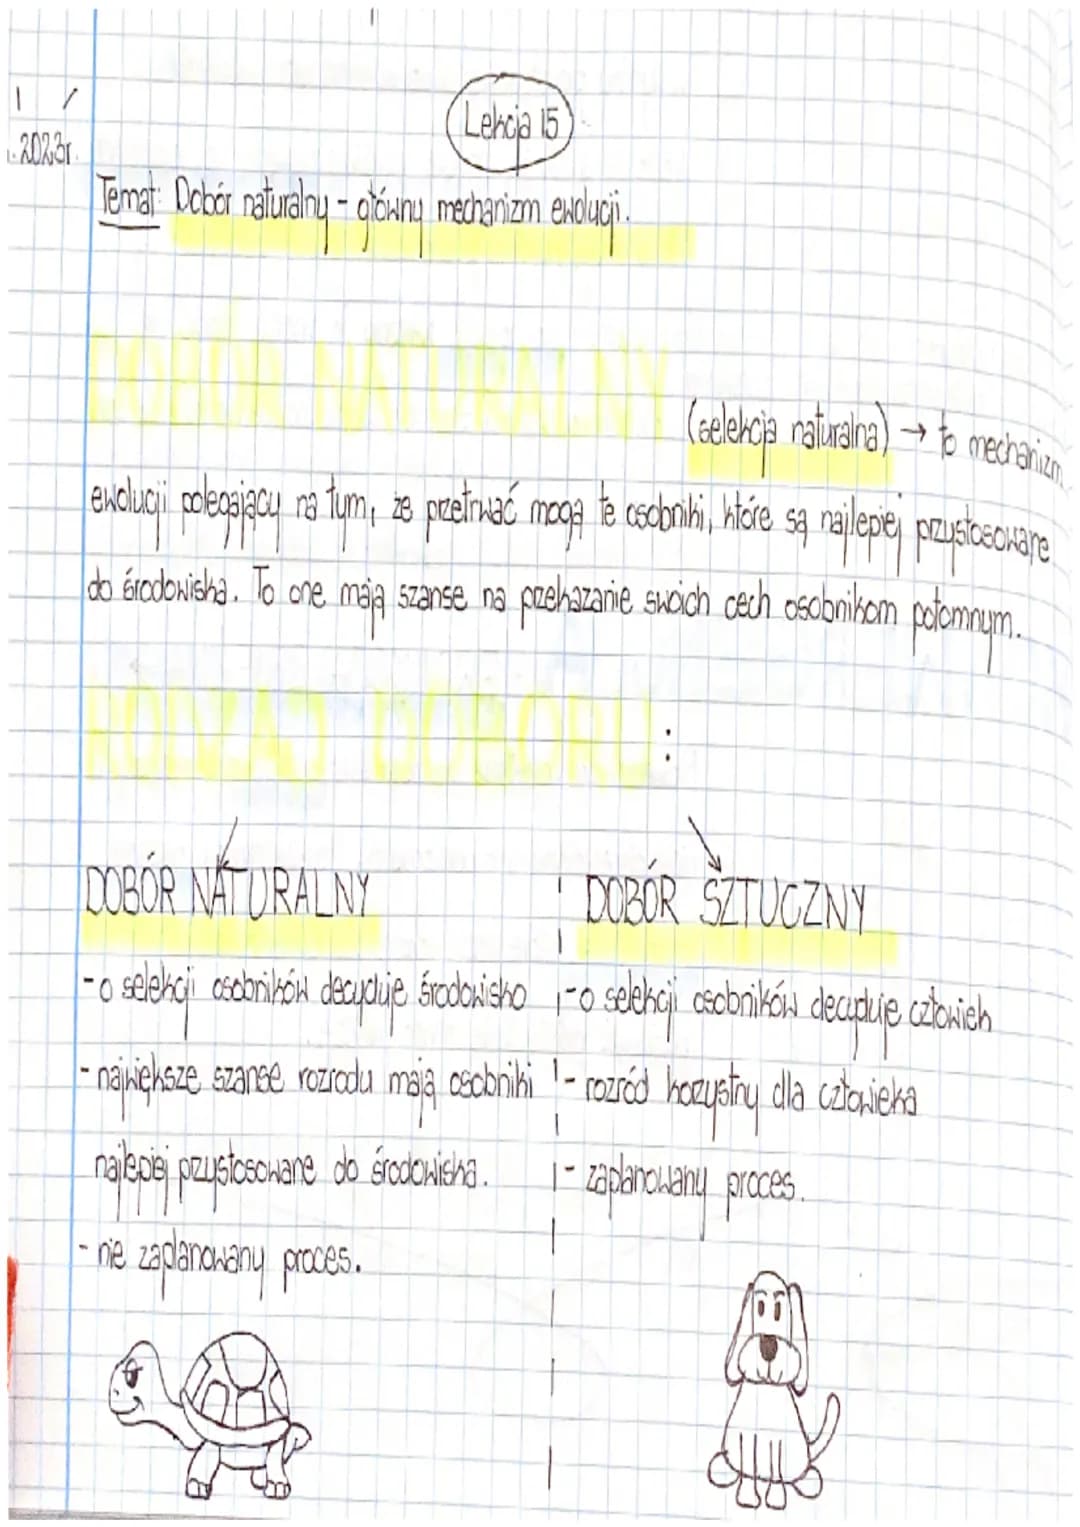 Lekcja 15
2023r.
Temat: Dobór naturalny - główny mechanizm ewolucji.
DOBÓR NATURALNY (selekcja naturalna) → to mechanizm
ewolucji polegający na tym, że przetrwać mogą te osobniki, które są najlepiej przystosowane
do środowiska. To one mają szanse na przekazanie swoich cech osobnikom potomnym.
RODZAJ DOBORU:
DOBÓR NATURALNY
- o selekcji osobników decyduje środowisko
- największe szanse rozrodu mają osobniki
najlepiej przystosowane do środowiska.
- nie zaplanowany proces.
DOBÓR SZTUCZNY
- o selekcji osobników decyduje człowiek
- rozród korzystny dla człowieka
- zaplanowany proces.